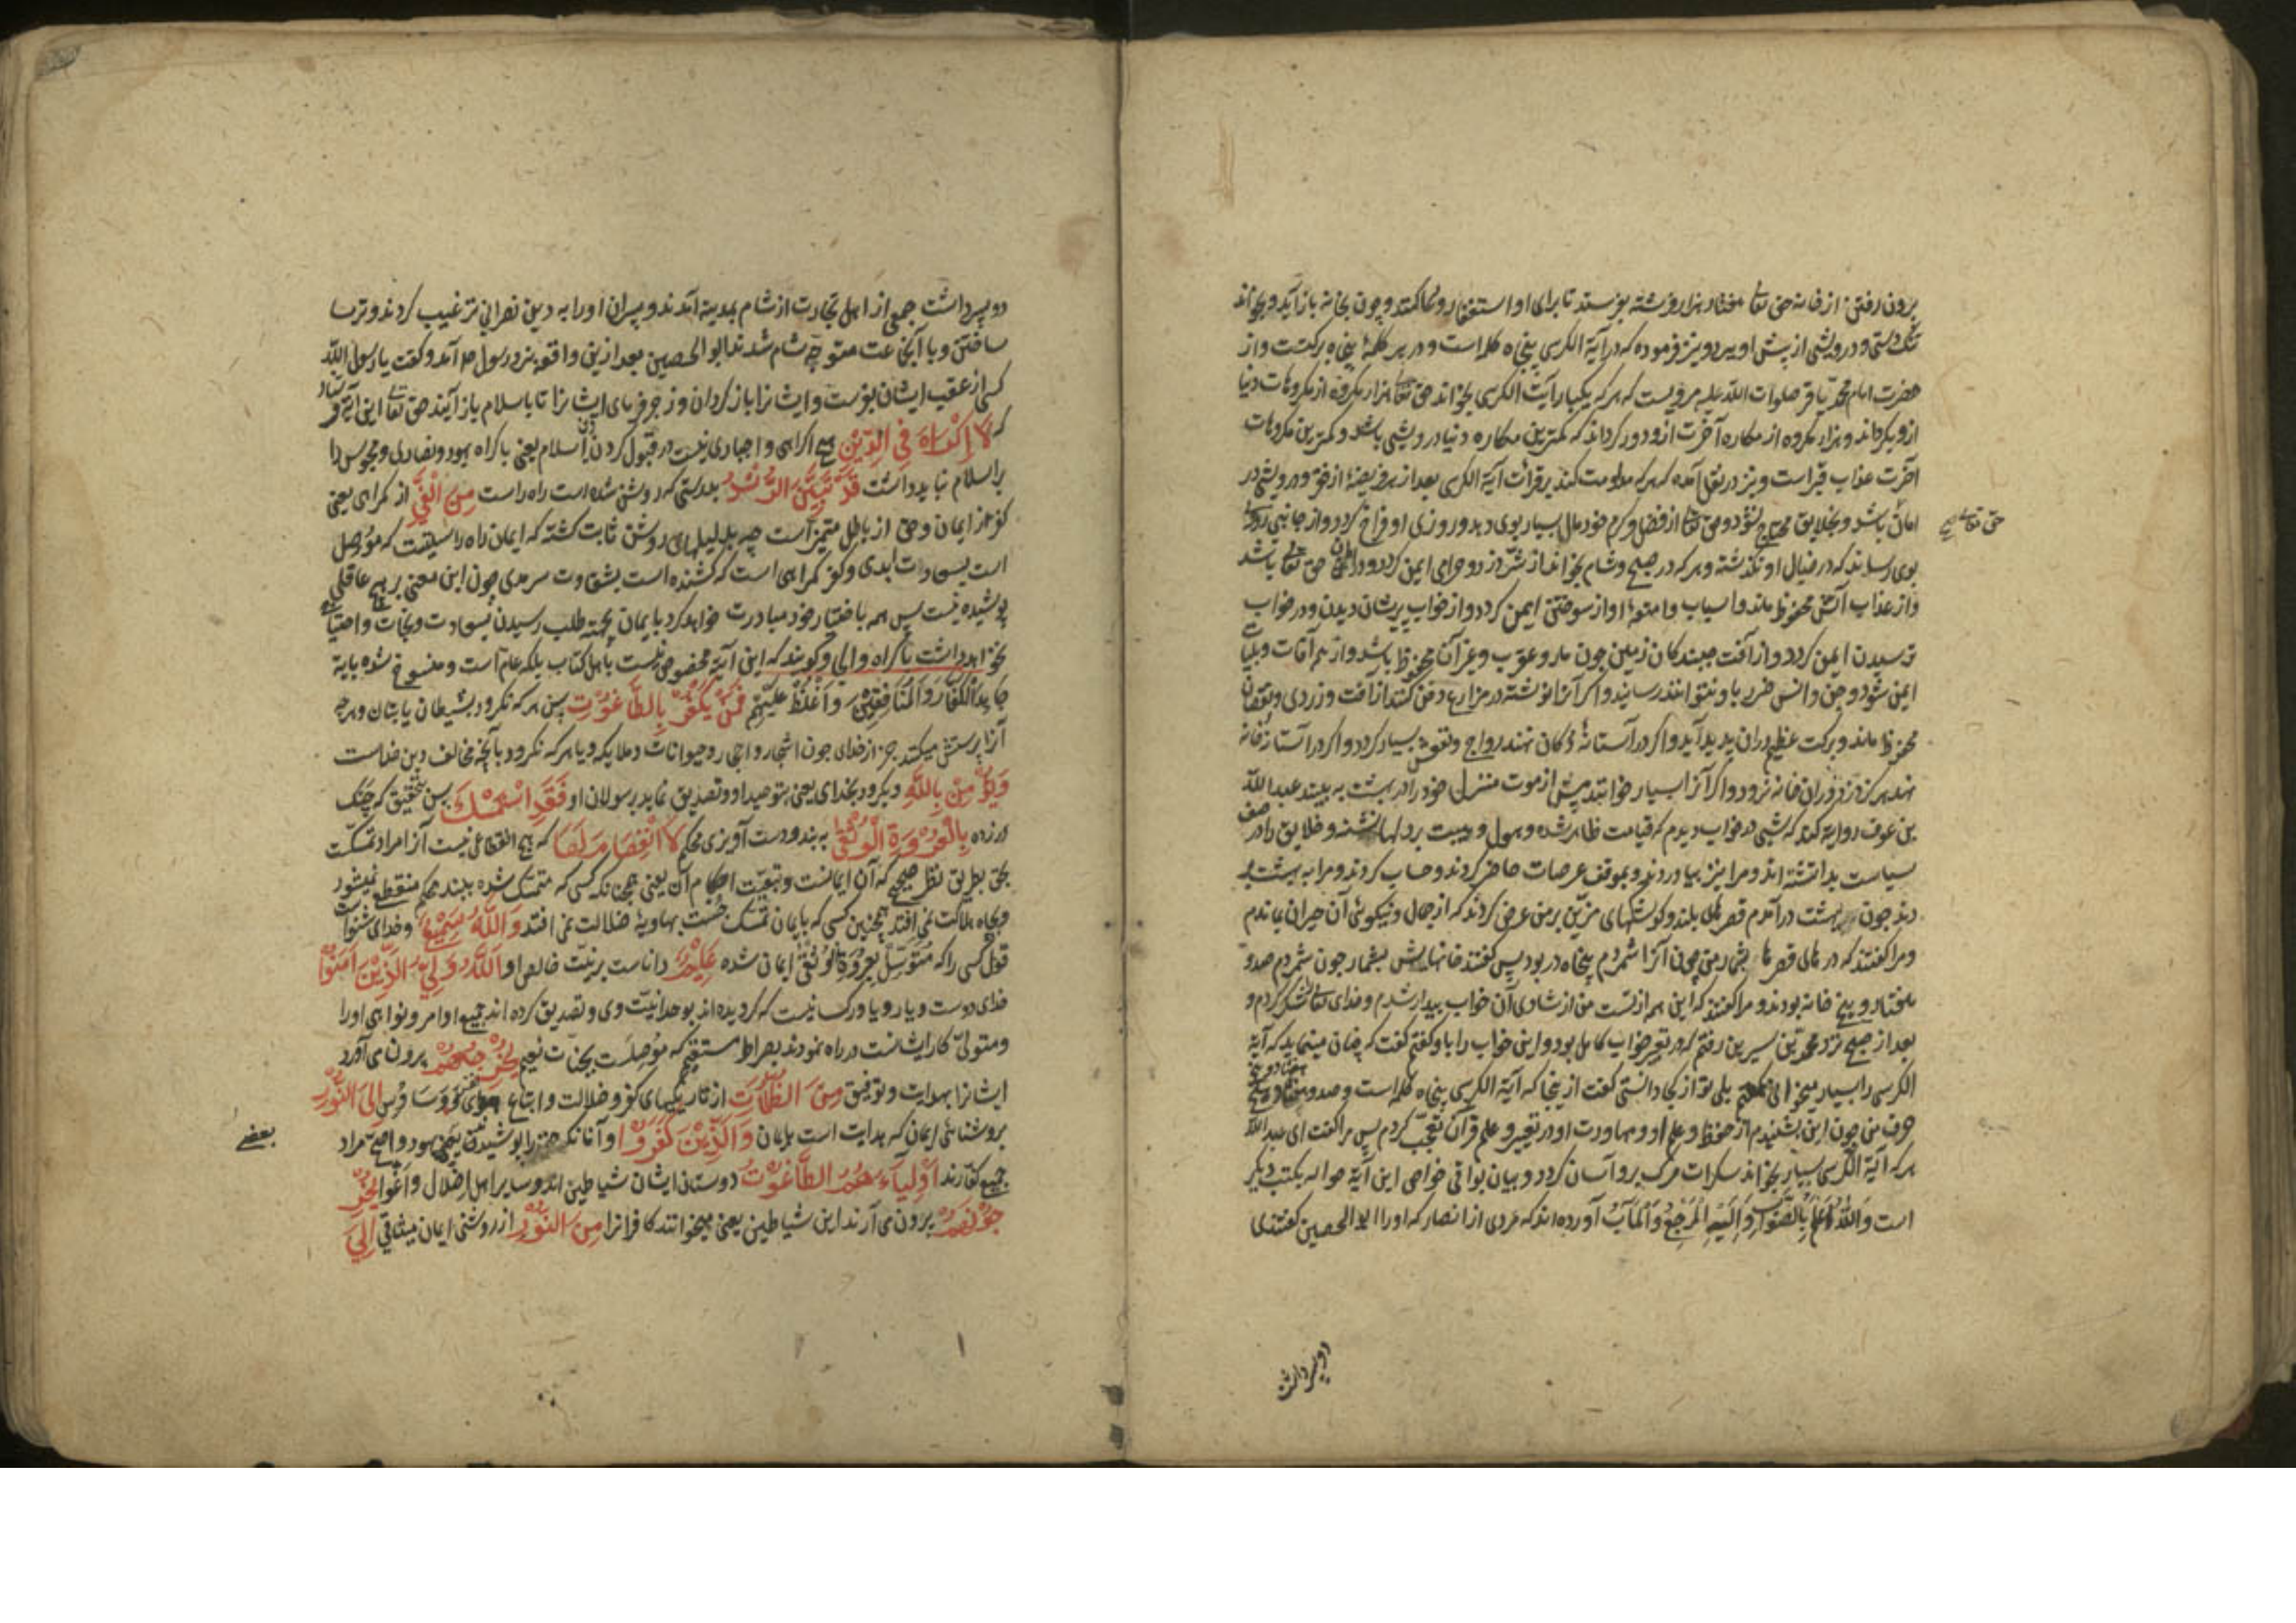 برون رفتن از خانه حق تعالی هفتاد هزار فرشته بفرستد تا برای او استغفار و دعا کنند و چون بخانه باز آید و بخواند
تنگ دستی و درویشی از پیش او ببرد و نیز فرموده که در آیة الکرسی پنجاه کلمه است و در هر کلمهٔ پنجاه برکتست و از
حضرت امام محمد باقر صلوات الله علیه مرویست که هر که یکبار آیت الکرسی بخواند حق تعالی هزار مکروه از مکروهات دنیا
ازو بگرداند و هزار مکروه از مکاره آخرت ازو دور گرداند که کمترین مکاره دنیا درویشی باشد و کمترین مکروهات
آخرت عذاب قبر است و نیز در نقل آمده که هر که مداومت کند بر قرائت آیة الکرسی بعد از هر فریضهٔ از فقر و درویشی در
امان باشد و بخلایق محتاج نشود و حق تعالی از فضل و کرم خود مال بسیار بوی دهد و روزی او فراخ گردد و از جایی روزی
بوی رساند که در خیال او نگذشته و هر که در صبح و شام بخواند از شر دزد و حرامی ایمن گردد و در امان حق تعالی باشد
و از عذاب آتش محفوظ ماند و اسباب و امتعهٔ او از سوختن ایمن گردد و از خواب پریشان دیدن و در خواب
ترسیدن ایمن گردد و از آفت جنبندکان زمین چون مار و عقرب و غیر آن محفوظ باشد و از همه آفات و بلیات
ایمن شود و جن و انس ضرر باو نتوانند رسانید و اگر آنرا نوشته در مزارع دفن کنند از آفت و دزدی و نقصان
محفوظ ماند و برکت عظیم در ان پدید آید و اگر در آستانهٔ دکان نهند رواج و نقودش بسیار گردد و اگر در آستانهٔ خانه
نهند هرگز دزد در ان خانه نرود و اگر آنرا بسیار خوانند پیش از موت منزل خود را در بهشت به بینند عبدالله
بن عوف روایه کند که شبی در خواب دیدم که قیامت ظاهر شده و هول و هیبت بر دلها نشسته و خلایق را در صف
سیاست بداشته اند و مرا نیز بیاوردند و بموقف عرصات حاضر کردند و حساب کردند و مرا به بهشت بر
دند چون در بهشت در آمدم قصرهای بلند و کوشکهای مزین بر من عرض کردند که از جمال و نیکوئی آن حیران بماندم
و مرا گفتند که درهای قصرها بشمار من چون آنرا شمردم پنجاه در بود پس گفتند خانهایش بشمار چون شمردم صد و
هفتاد و پنج خانه بودند و مرا گفتند که این همه از تست من از شادی آن خواب بیدار شدم و خدای تعالی را شکر کردم و
بعد از صبح نزد محمد بن سیرین رفتم که در تعبیر خواب کامل بود و این خواب را باو گفتم گفت که چنان مینماید که آیة
الکرسی را بسیار میخوانی گفتم بلی تو از کجا دانستی گفت از ینجا که آیة الکرسی پنجاه کلمه است و صد و هفتاد و پنج
حرف من چون این بشنیدم از حفظ و علم او و مهارت او در تعبیر و علم قرآن تعجب کردم پس مرا گفت ای عبدالله
هر که آیة الکرسی بسیار بخواند سکرات مرگ برو آسان گردد و بیان بواقی خواص این آیة حواله بکتب دیگر
است وَاللهُ اَعلَمُ بِالصَّوابِ وَ اِلَیهِ المَرجِعُ وَالمَآبُ آورده اند که مردی از انصار که او را ابو الحصین گفتندی
حق تعالی
دو پسر داشت
دو پسر داشت جمعی از اهل تجارت از شام بمدینه آمدند و پسران او را به دین نصرانی ترغیب کردند و ترسا
ساختن و با آنجماعت متوجه شام شدند ابو الحصین بعد از ین واقعه نزد رسول ص آمد و گفت یا رسول الله
کسی از عقب ایشان بفرست و ایشانرا باز گردان و زجر فرمای ایشانرا تا باسلام باز آیند حق تعالی این آیه فرستاد
که لَا اِکْرَاهَ فِی الدِّیْنِ هیچ اکراهی و اجباری نیست در قبول کردن دین اسلام یعنی باکراه یهود و نصاری و مجوس را
بر اسلام نباید داشت قَدْ تَبَیَّنَ الرُّشْدُ بدرستی که روشن شده است راه راست مِنَ الْغَیِّ از گمراهی یعنی
کفر از ایمان و حق از باطل متمیز است چه بدلیلهای روشن ثابت گشته که ایمان راه راستیست که موصل
است بسعادت ابدی و کفر گمراهی است که کشنده است بشقاوت سرمدی چون این معنی بر هیچ عاقلی
پوشیده نیست پس همه باختیار خود مبادرت خواهد کرد بایمان بجهت طلب رسیدن بسعادت و نجات و احتیاج
نخواهد داشت باکراه و الجا و گویند که این آیه مخصوص نیست باهل کتاب بلکه عام است و منسوخ شده بایة
جَاهِدِ الْکُفَّارَ وَالْمُنَافِقِیْنَ وَاغْلُظْ عَلَیْهِمْ فَمَنْ یَکْفُرْ بِالطَّاغُوْتِ پس هر که نگرود بشیطان یا بتان و هرچه
آنرا پرستش میکنند جز از خدای چون اشجار و احجار و حیوانات و ملایکه و یا هر که نگرود بآنچه مخالف دین خداست
وَیُؤْمِنْ بِاللّٰهِ و بگرود بخدای یعنی بتوحید او و تصدیق نماید برسولان او فَقَدِ اسْتَمْسَکَ پس بتحقیق که چنگ
در زده بِالْعُرْوَةِ الْوُثْقٰی به بند و دست آویزی محکم لَا انْفِصَامَ لَهَا که هیچ انقطاعی نیست آنرا مراد تمسکست
بحق بطریق نظر صحیح که آن ایمانست و تبعیت احکام آن یعنی همچنانکه کسی که متمسک شده ببند محکم منقطع نمیشود
و بچاه هلاکت نمی افتد همچنین کسی که بایمان تمسک جست بهاویهٔ ضلالت نمی افتد وَاللّٰهُ سَمِیْعٌ و خدای شنواست
قول کسی را که متوسل بعروة الوثقی ایمان شده عَلِیْمٌ داناست بر نیت خالص او اَللّٰهُ وَلِیُّ الَّذِیْنَ اٰمَنُوْا
خدای دوست و یار و یاور کسانیست که گرویده اند بوحدانیت وی و تصدیق کرده اند جمیع اوامر و نواهی او را
و متولی کار ایشانست در راه نمودن بصراط مستقیم که موصلست بجنات نعیم یُخْرِجُهُمْ برون می آورد
ایشانرا بهدایت و توفیق مِنَ الظُّلُمٰتِ از تاریکیهای کفر و ضلالت و اتباع هوای نفس و وساوس اِلَی النُّوْرِ
بروشنائی ایمان که هدایت است بایمان وَالَّذِیْنَ کَفَرُوْا و آنانکه حق را پوشیدن یعنی یهود و اصح مراد
جمیع کفارند اَوْلِیَآءُهُمُ الطَّاغُوْتُ دوستان ایشان شیاطین اند و سایر اهل اضلال و اغوا یُخْرِ
جُوْنَهُمْ برون می آرند این شیاطین یعنی میخوانند کافرانرا مِنَ النُّوْرِ از روشنی ایمان میثاقی اِلَی
بعضی